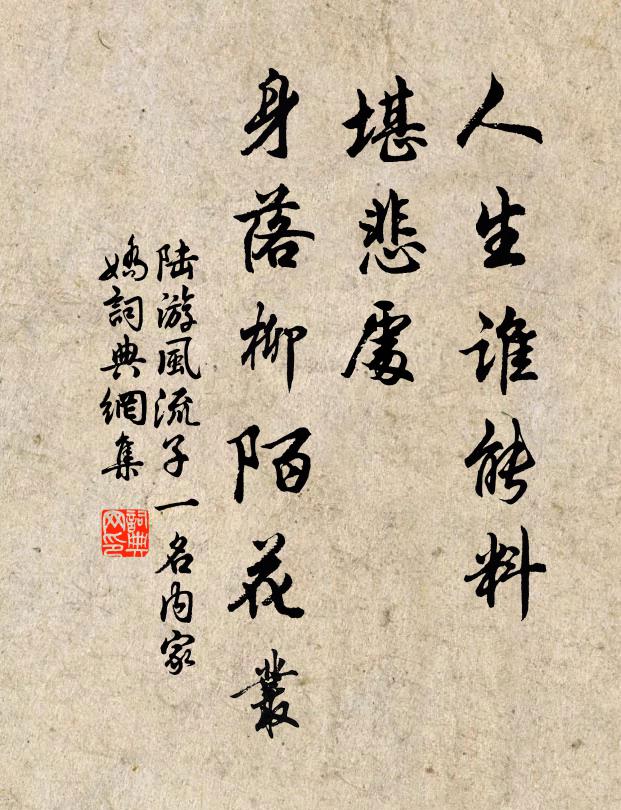 人生谁能料
堪悲處
身落柳陌花叢
陆游風流子一名内家
嬌詞典網集
詞典
网印